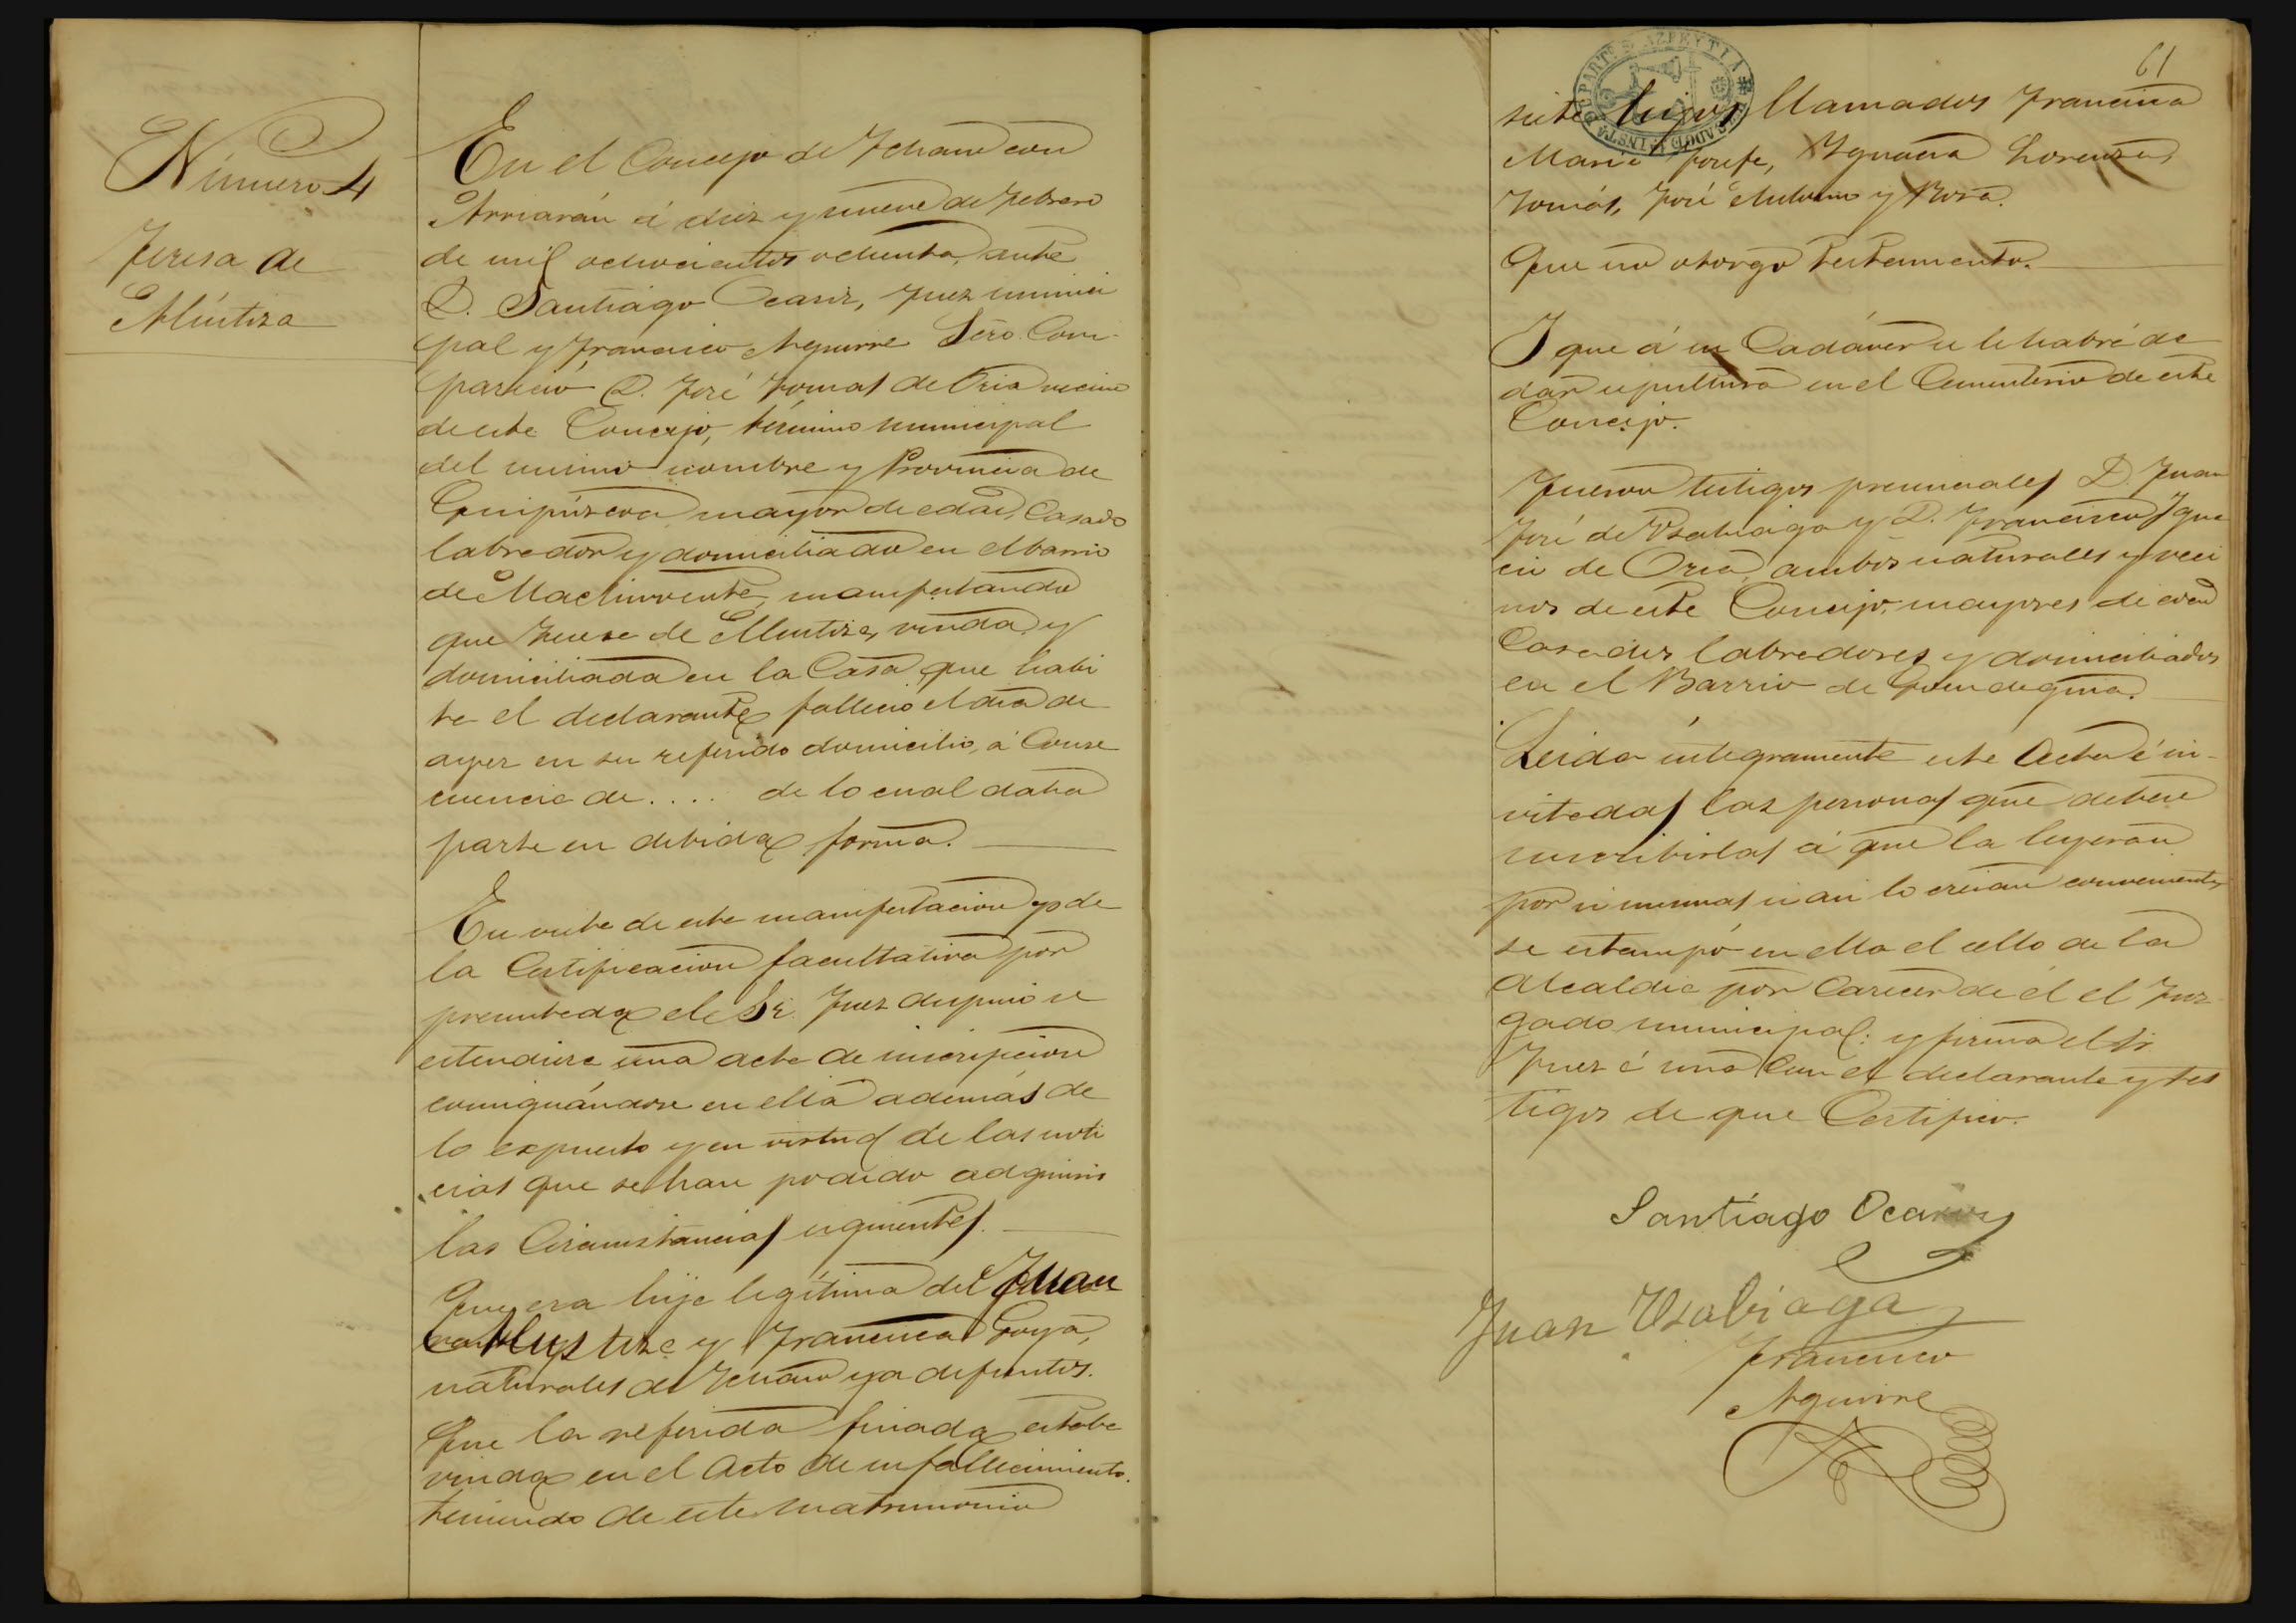 Número 4
Teresa de
Alústiza
En el Concejo de Ichaso con
Arriarán á diez y nueve de Febrero
de mil ochocientos ochenta, ante
D. Santiago Ocariz, Juez munici
pal y Francisco Aguirre Srio. Com-
pareció D. José Tomas de Oria vecino
de este Concejo, término municipal
del mismo nombre y Provincia de
Guipúzcoa, mayor de edad, Casado
labrador y domiciliado en el barrio
de Machinvente, manifestando
que Teresa de Alustiza, viuda y
domiciliada en la Casa que habi
ta el declarante falleció el dia de
ayer en su referido domicilio, á Conse
cuencia de .... de lo cual daba
parte en debida forma.
En vista de esta manifestacion y de
la Certificacion facultativa por
presentada el Sr. Juez dispuso se
estendiese una acta de inscripcion
consignándose en ella además de
lo expuesto y en virtud de las noti
cias que se han podido adquirir
las Circunstancias siguientes.
Que era hija legítima de Juan
Alustiza y Francisca Goya,
naturales de Ichaso ya difuntos.
Que la referida finada estaba
viuda en el acto de su fallecimiento.
teniendo de este matrimonio
61
DEPART. DE AZPEYTIA
siete hijos llamados Francisca
Maria Josefa, Ygnacia Lorenza,
Tomás, José Antonio y Rosa.
Que no otorgó testamento.
Y que á su Cadáver se le habrá de
dar sepultura en el Cementerio de este
Concejo.
Fueron testigos presenciales D. Juan
José de Usabiaga y D. Francisco Ygna
cio de Oria, ambos naturales y veci
nos de este Concejo, mayores de edad
Casados labradores y domiciliados
en el Barrio de
Leida íntegramente esta Acta é in-
vitadas las personas que deben
suscribirlas á que la leyeran
por si mismas si asi lo creian conveniente
se estampó en ella el sello de la
Alcaldia por Carecer de él el Juz
gado municipal: y firma el Sr.
Juez é una Con el declarante y tes
tigos de que Certifico.
Santiago Ocariz
Juan Usabiaga
Francisco
Aguirre